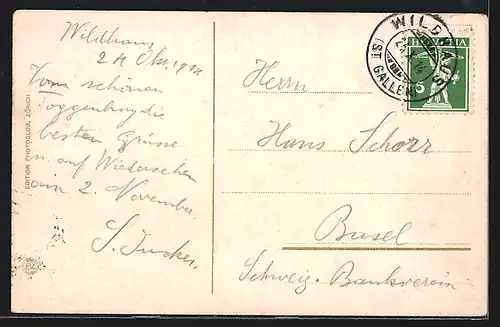 Wildhaus
24 Okt. 1914
Vom schönen
Toggenburg die
besten Grüsse
u. auf Wiedersehen
am 2. November.
S.
EDITION PHOTOGLOB, ZÜRICH
PZ
WILDHAUS
(ST. GALLEN)
HELVETIA
5
Herrn
Hans Schorr
Basel
Schweiz. Bankverein